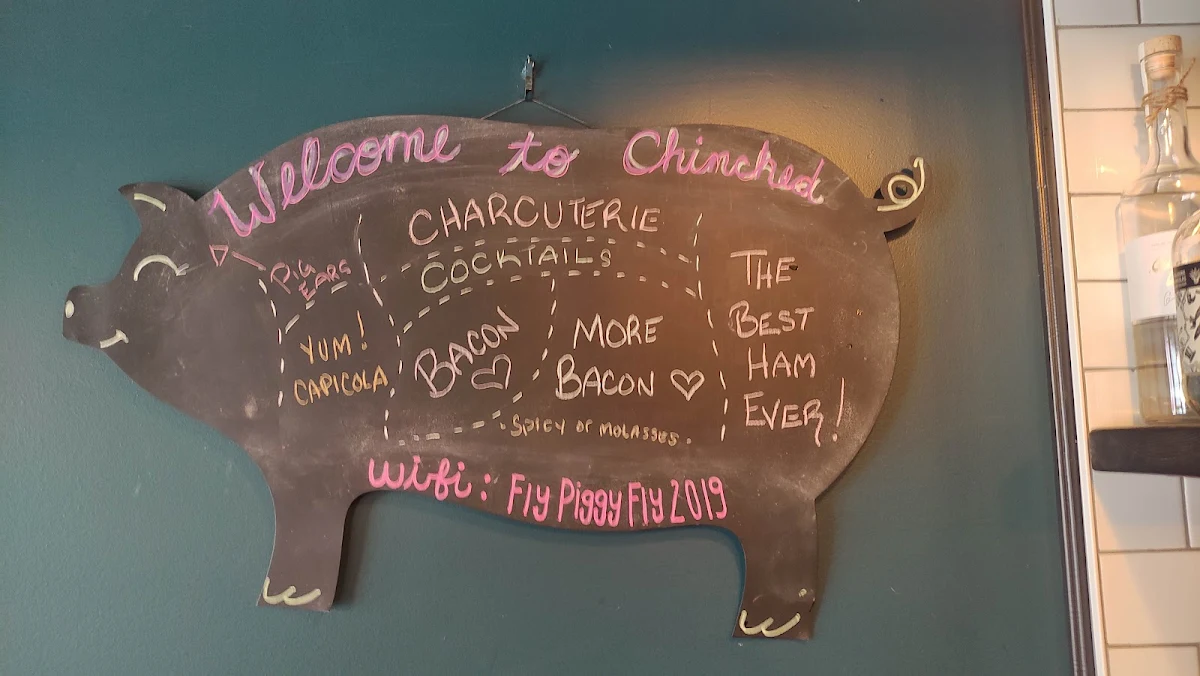 Welcome to Chinched
CHARCUTERIE
COCKTAILS
PIG
EARS
YUM!
CAPICOLA
BACON
MORE
BACON
SPICY OR MOLASSES.
THE
BEST
HAM
EVER!
Wifi: Fly Piggy Fly 2019